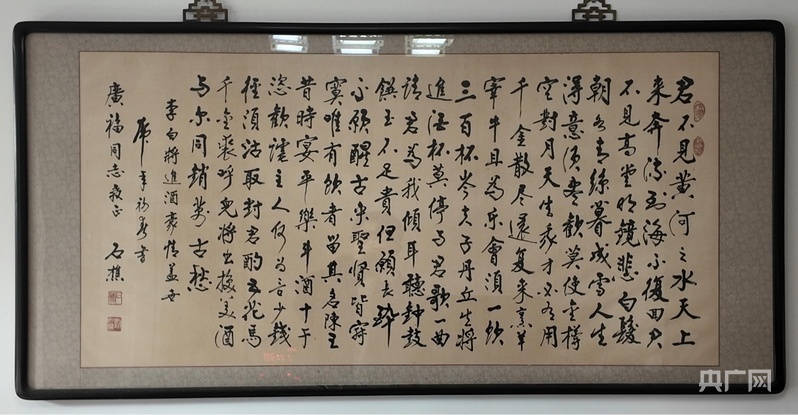 君不見黃河之水天上
来奔流到海不復回君
不見高堂明鏡悲白髮
朝如青絲暮成雪人生
得意須盡歡莫使金樽
空對月天生我才必有用
千金散尽還复来烹羊
宰牛且為乐會須一飲
三百杯岑夫子丹丘生將
進酒杯莫停与君歌一曲
請君為我傾耳聽钟鼓
饌玉不足貴但願長醉
不願醒古来聖賢皆寂
寞唯有飲者留其名陳王
昔時宴平樂斗酒十千
恣歡謔主人何为言少錢
徑須沽取對君酌五花馬
千金裘呼兒將出換美酒
与尔同銷萬古愁
李白將進酒豪情蓋世
年初春書
廣福同志教正 石樵
央广网